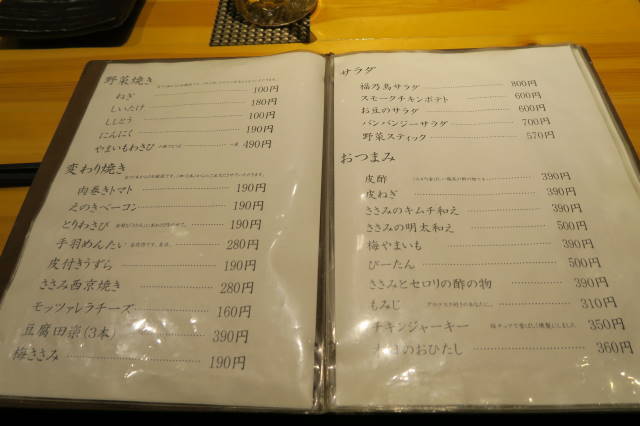 野菜焼き
ねぎ 100円
しいたけ 180円
ししとう 100円
にんにく 190円
やまいもわさび 490円
変わり焼き
肉巻きトマト 190円
えのきベーコン 190円
とりわさび 190円
手羽めんたい 280円
皮付きうずら 190円
ささみ西京焼き 280円
モッツァレラチーズ 160円
豆腐田楽(3本) 390円
梅ささみ 190円
サラダ
福乃鳥サラダ 800円
スモークチキンポテト 600円
お豆のサラダ 600円
バンバンジーサラダ 700円
野菜スティック 570円
おつまみ
皮酢 390円
皮ねぎ 390円
ささみのキムチ和え 390円
ささみの明太和え 500円
梅やまいも 390円
ぴーたん 500円
ささみとセロリの酢の物 390円
もみじ 310円
チキンジャーキー 350円
のおひたし 360円